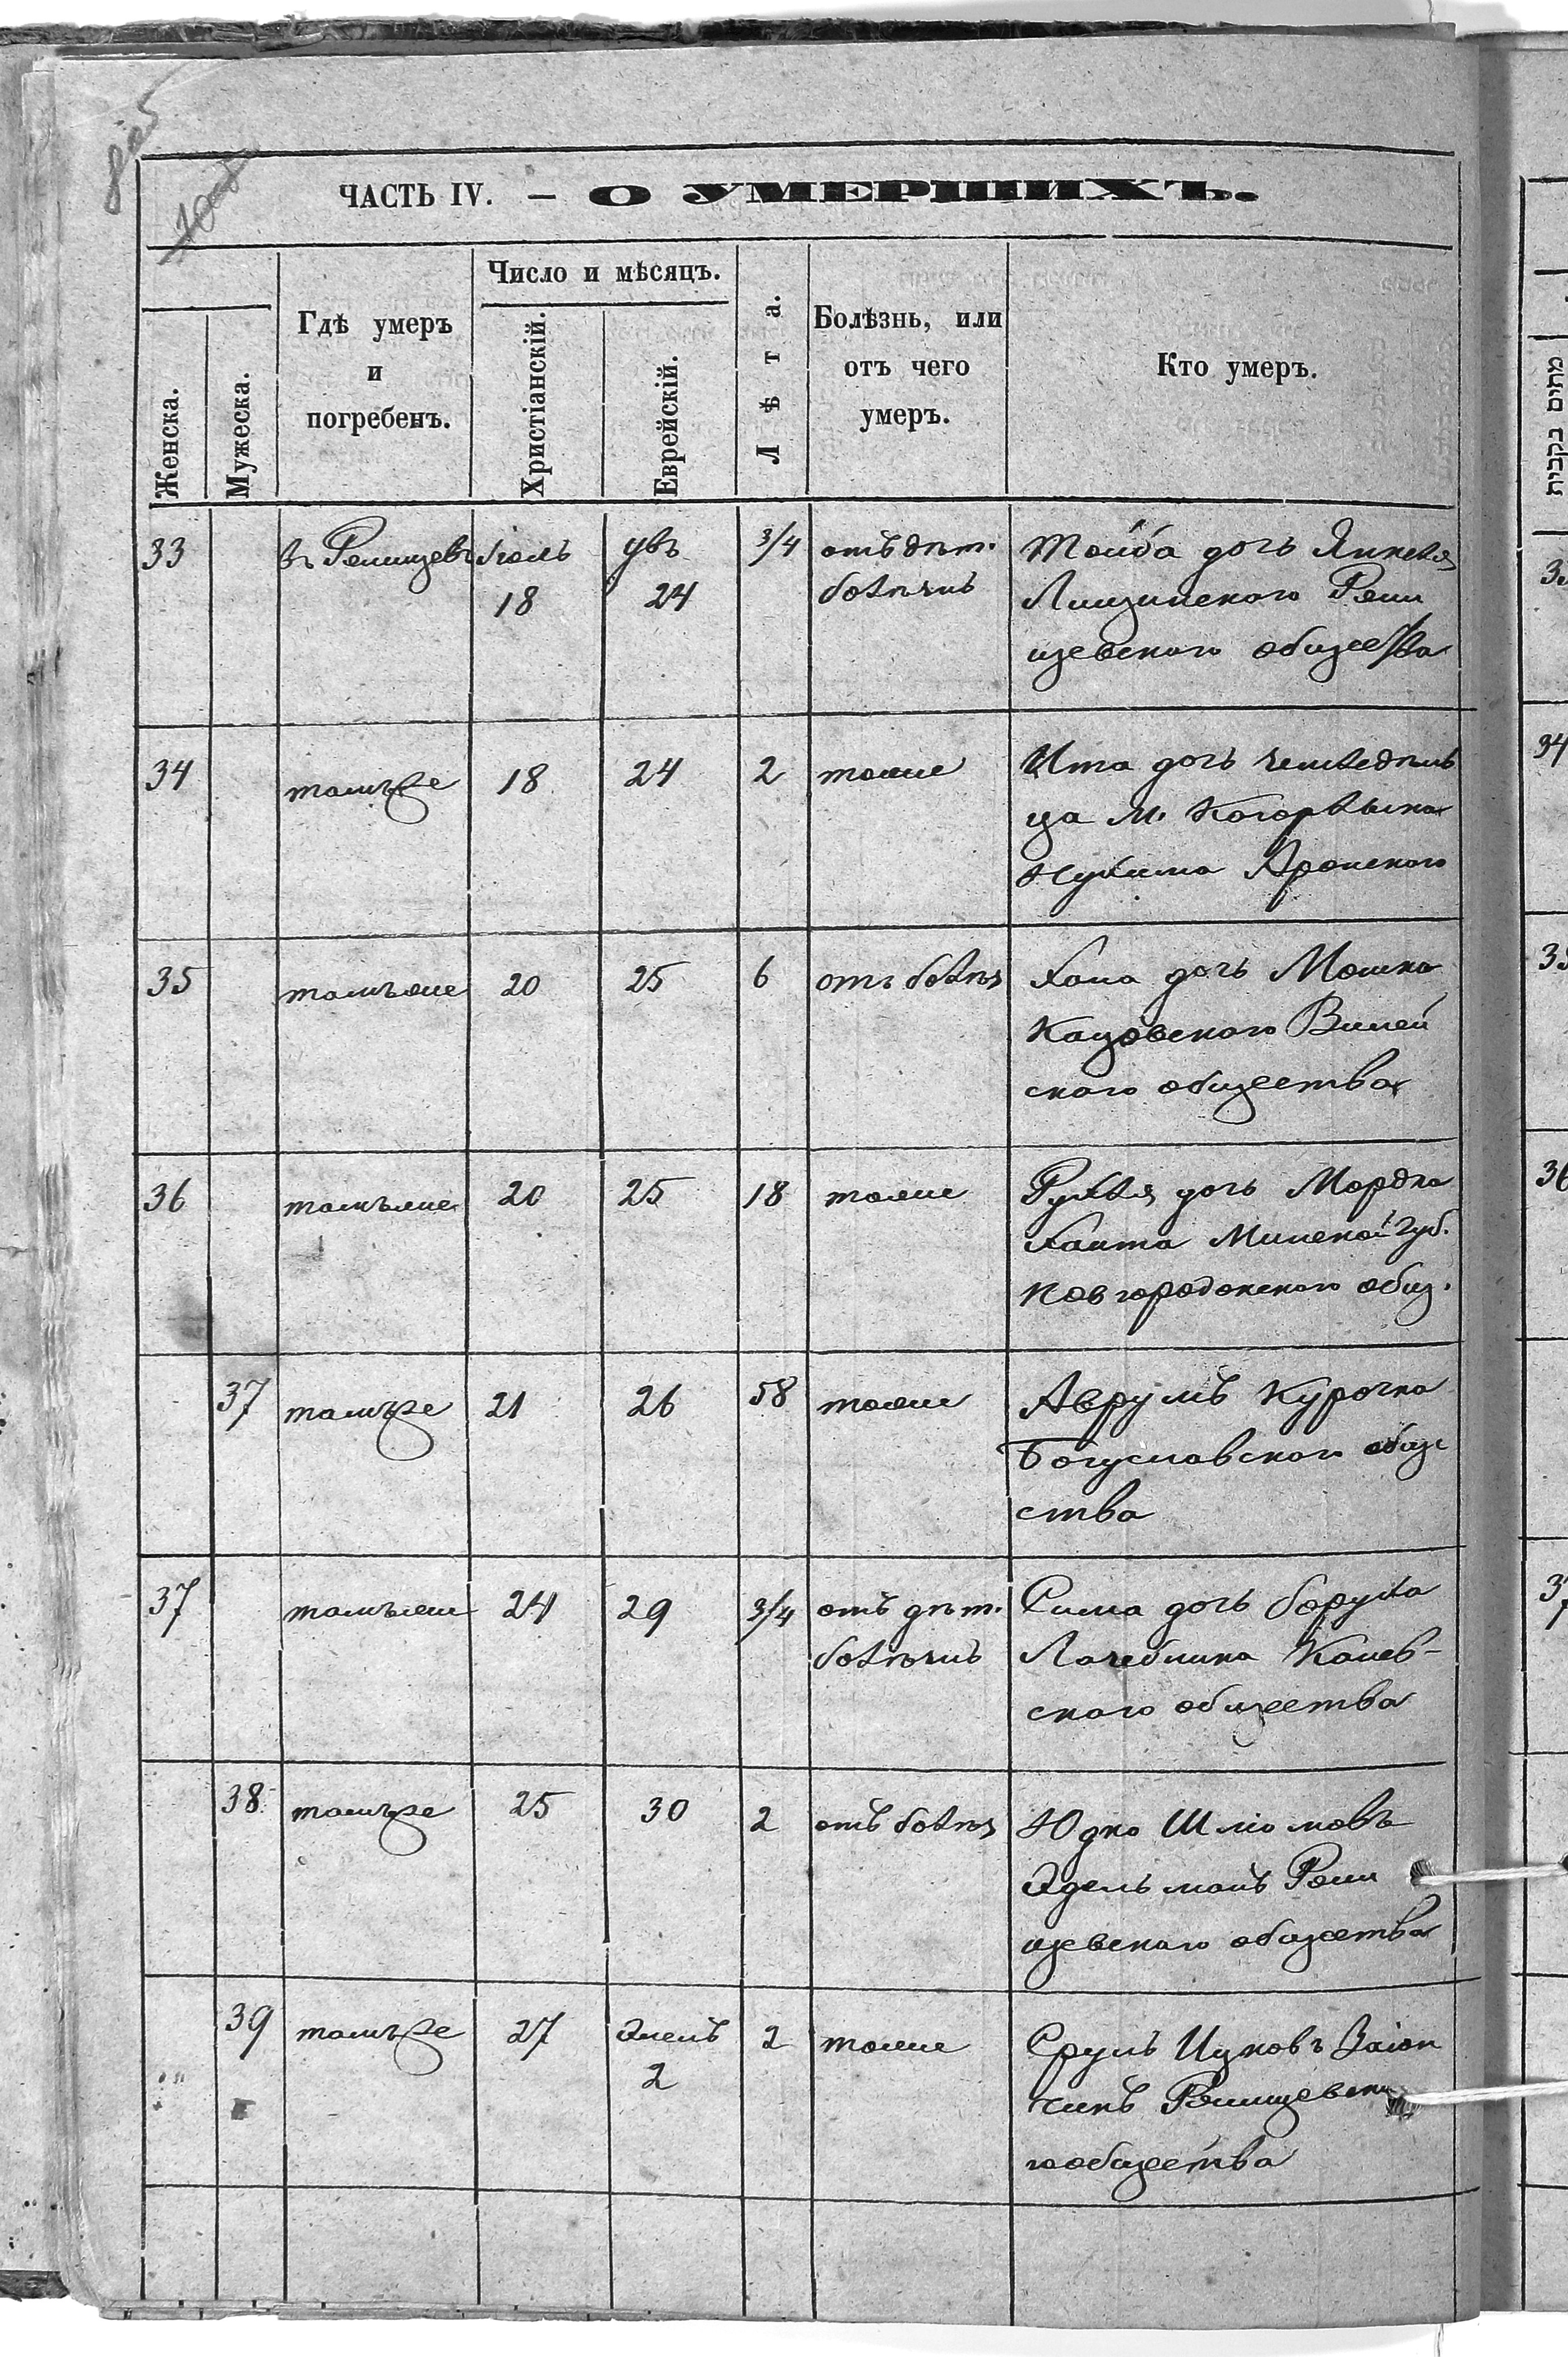 ЧАСТЬ IV. — О УМЕРШИХЪ.
Женска.
Мужеска.
Гдѣ умеръ
и
погребенъ.
Число и мѣсяцъ.
Христіанскій.
Еврейскій.
Лѣта.
Болѣзнь, или
отъ чего
умеръ.
Кто умеръ.
33
въ Ромищевъ
Іюль
18
увъ
24
3/4
отъ дѣт.
болѣзнь
Тойба дочь Янкеля
Лищинского Роми
щевского общества
34
тамъже
18
24
2
тоже
Ита дочь земледѣль
ца м. Когорлыка
Нухима Аронского
35
тамъже
20
25
6
отъ болѣз
Хана дочь Мошка
Кацовского
ского общества
36
тамъже
20
25
18
тоже
Рухля дочь Мордка
Хаита Минской губ.
Новгородокского общ.
37
тамъже
21
26
58
тоже
Аврумъ Курочка
Богуславского обще
ства
37
тамъже
24
29
3/4
отъ дѣт.
болѣзнь
Сима дочь Боруха
Канев-
ского общества
38
тамъже
25
30
2
отъ болѣз
Юдко Шліомовъ
Эдельманъ Роми
щевского общества
39
тамъже
27
Элелъ
2
2
тоже
Сруль Ицковъ Заіон
чикъ Ромищевско
го общества
מתים
33
34
35
36
37